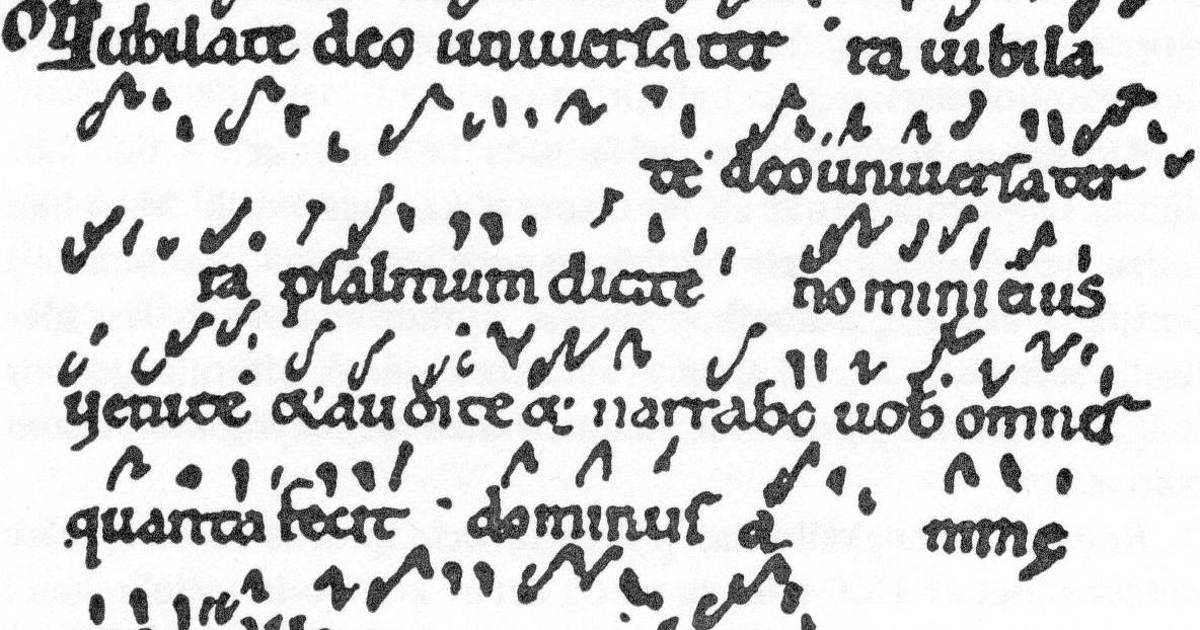 Off Iubilate deo uniuersa ter ra iu bila
te deo uniuersa ter
ra psalmum dicite no mini eius
uenite & audite & narrabo uob omnes
quanta fecit dominus a nimę